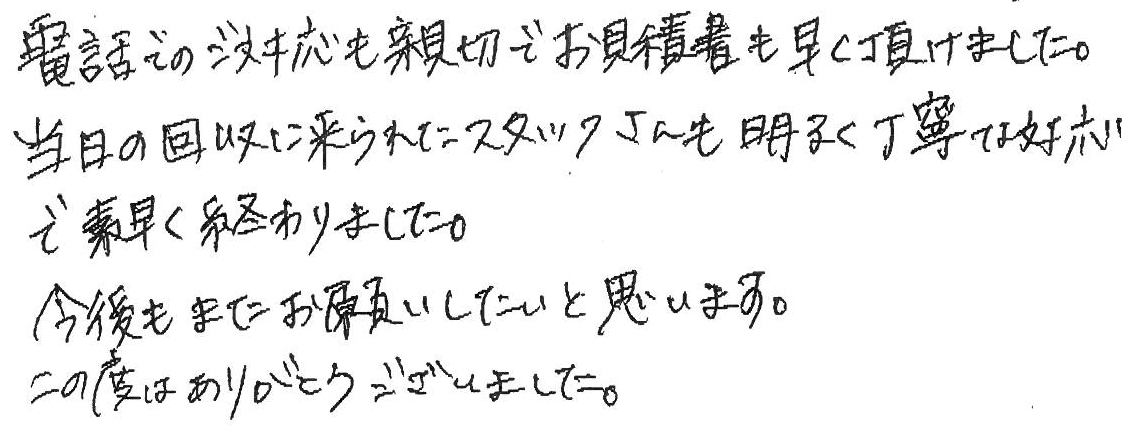 電話でのご対応も親切でお見積書も早く頂けました。
当日の回収に来られたスタッフさんも明るく丁寧な対応
で素早く終わりました。
今後もまたお願いしたいと思います。
この度はありがとうございました。